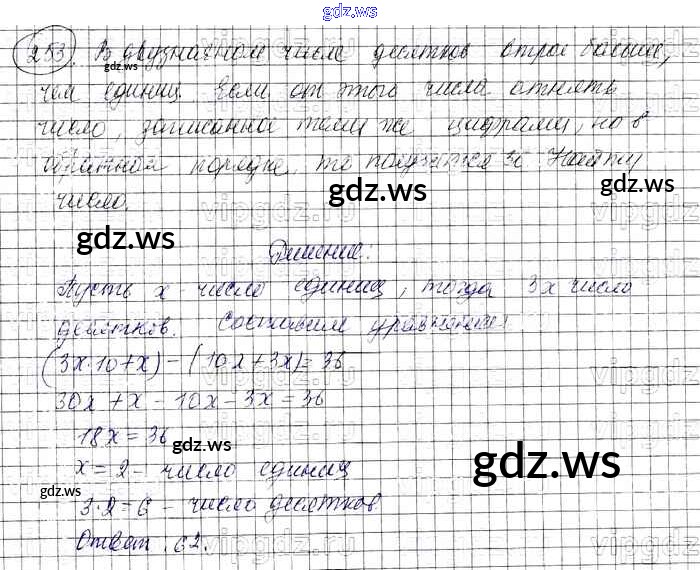 gdz.ws
253. В двузначном числе десятков втрое больше,
чем единиц. Если от этого числа отнять
число, записанное теми же цифрами, но в
обратном порядке, то получится 36 Найти
число.
gdz.ws
gdz.ws
Решение:
Пусть x - число единиц, тогда 3x число
десятков. Составим уравнение:
(3x·10+x)-(10x+3x)=36
30x+x-10x-3x=36
18x=36
gdz.ws
x=2- число единиц
gdz.ws
gdz.ws
3·2=6 - число десятков.
Ответ. 62.
vipgdz.ws